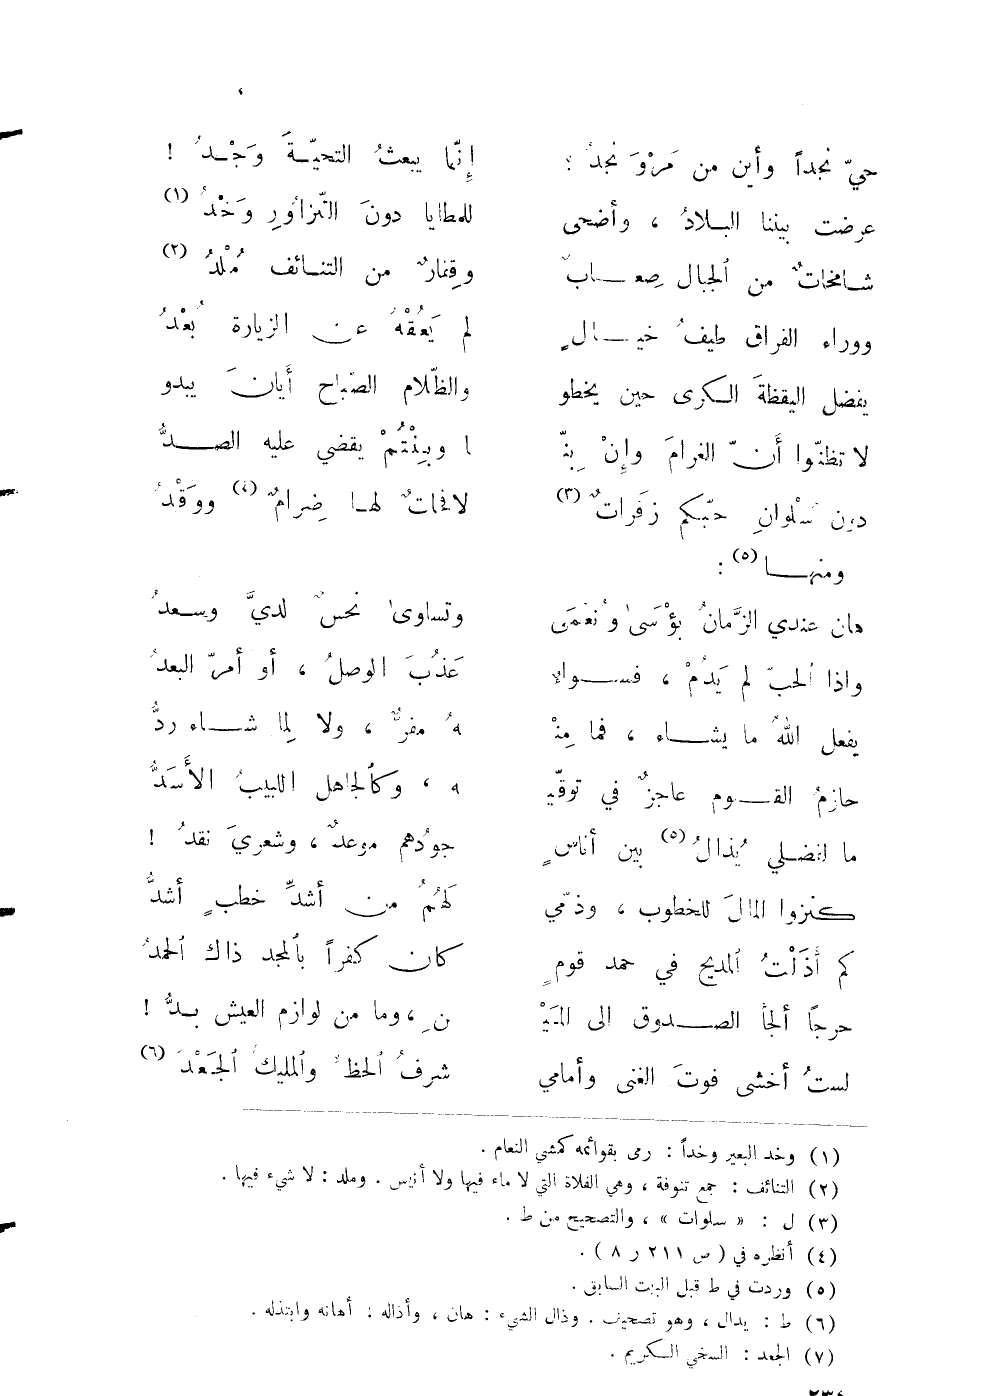 حيّ نجداً وأين من مَرْوَ نجدُ ؟ إنّما يبعثُ التحيّةَ وَجْدُ !
عرضت بيننا البلادُ ، وأضحى للمطايا دونَ التّزاوُرِ وَخْدُ (١)
شامخاتٌ من ٱلجبال صِعابٌ وقِفارٌ من التنائف مُلْدُ (٢)
ووراء الفراق طيفُ خيالٍ لم يَعُقْهُ عن الزيارة بُعْدُ
يفضل اليقظةَ الكرى حين يخطو والظّلام الصّباح أيانَ يبدو
لا تظنّوا أنّ الغرامَ وإنْ بِنّـ ا وبِنْتُمْ يقضي عليه الصدُّ
دون سُلْوانِ حبّكم زَفَراتٌ (٣) لافحاتٌ لها ضِرامٌ (٤) ووَقْدُ
ومنها (٥) :
هان عندي الزّمانُ بُؤْسَىٰ ونُعْمَى وتساوىٰ نحسٌ لديَّ وسعدُ
واذا ٱلحبّ لم يَدُمْ ، فسواء عَذُبَ الوصلُ ، أو أمرّ البعدُ
يفعل اللهُ ما يشاء ، فما مِنْـ هُ مفرٌّ ، ولا لِما شاء ردُّ
حازمُ القوم عاجزٌ في توقّيـ ه ، وكٱلجاهل اللبيبُ الأَسَدُّ
ما لفضلي يُذالُ (٥) بين أناسٍ جودُهم موعدٌ ، وشعريَ نقدُ !
كنزوا المالَ للخطوب ، وذمّي لَهُمُ من أشدِّ خطبٍ أشدُّ
كم أذَلْتُ ٱلمديح في حمد قومٍ كان كفراً بٱلمجد ذاك ٱلحمدُ
حرجاً ألجأ الصدوق الى المَيْـ نِ ، وما من لوازم العيش بدُّ !
لستُ أخشى فوتَ الغنى وأمامي شرفُ ٱلحظّ وٱلمليكُ ٱلجَعْدُ (٦)
(١) وخد البعير وخداً : رمى بقوائمه كمشي النعام .
(٢) التنائف : جمع تنوفة ، وهي الفلاة التي لا ماء فيها ولا أنيس . وملد : لا شيء فيها .
(٣) ل : « سلوات » ، والتصحيح من ط .
(٤) أنظره في ( ص ٢١١ ر ٨ ) .
(٥) وردت في ط قبل البيت السابق .
(٦) ط : يدال ، وهو تصحيف . وذال الشيء : هان ، وأذاله : أهانه وابتذله .
(٧) الجعد : السخي الكريم .